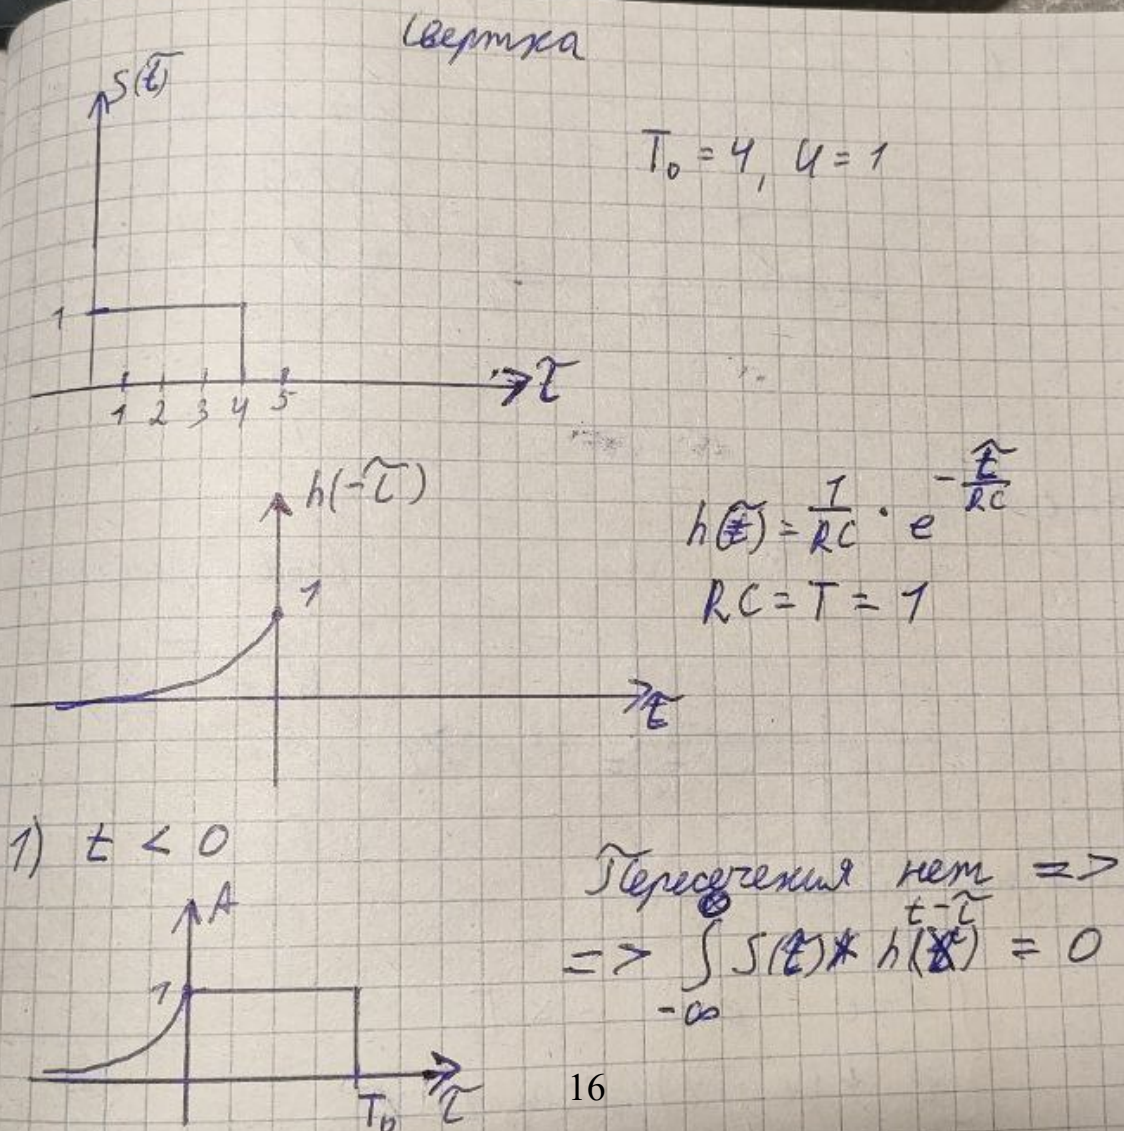 Свертка
S(τ)
T₀ = 4, U = 1
1
1 2 3 4 5
τ
h(-τ)
1
h(τ) = 1/RC · e^(-τ/RC)
RC = T = 1
τ
1) t < 0
Пересечения нет =>
A
=> ∫_{-∞}^{∞} S(τ)* h(t-τ) = 0
1
T₀ τ
16